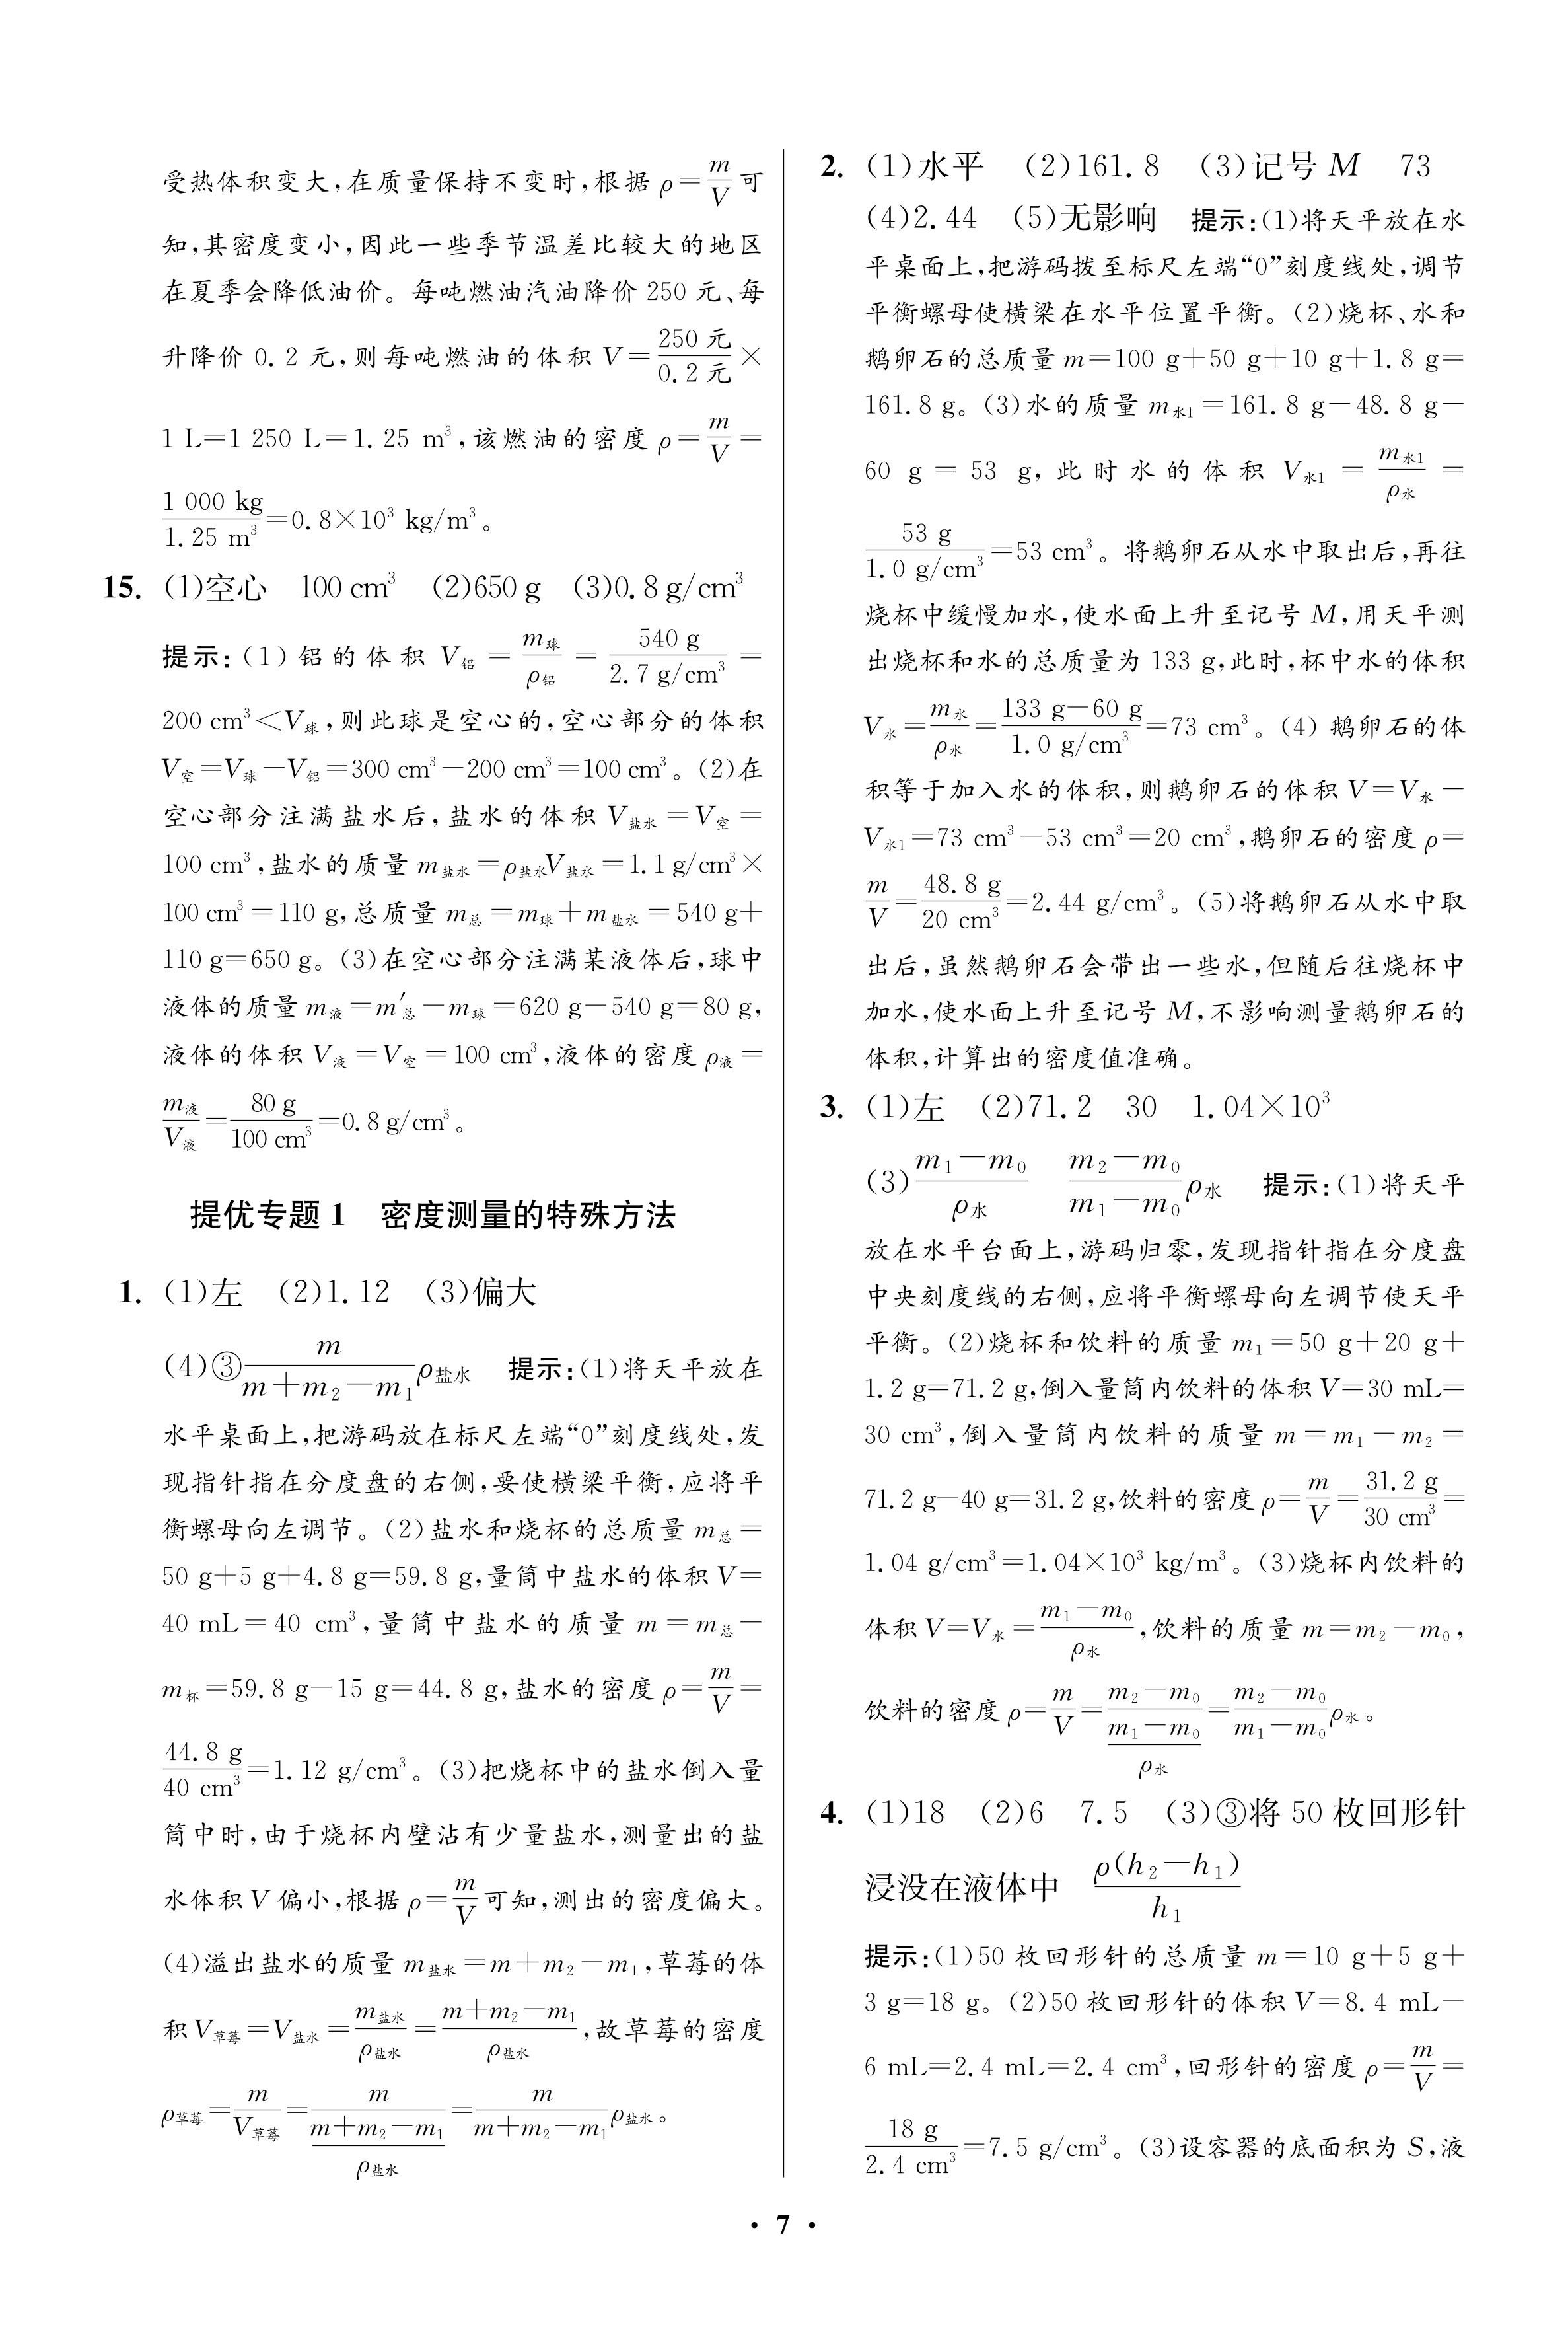 受热体积变大,在质量保持不变时,根据 ρ=m/V 可
知,其密度变小,因此一些季节温差比较大的地区
在夏季会降低油价。每吨燃油汽油降价 250 元、每
升降价 0.2 元,则每吨燃油的体积 V=250 元/0.2 元×
1 L=1 250 L=1.25 m³,该燃油的密度 ρ=m/V=
1 000 kg/1.25 m³=0.8×10³ kg/m³。
15. (1)空心 100 cm³ (2)650 g (3)0.8 g/cm³
提示:(1)铝的体积 V铝=m球/ρ铝=540 g/2.7 g/cm³=
200 cm³<V球,则此球是空心的,空心部分的体积
V空=V球-V铝=300 cm³-200 cm³=100 cm³。(2)在
空心部分注满盐水后,盐水的体积 V盐水=V空=
100 cm³,盐水的质量 m盐水=ρ盐水V盐水=1.1 g/cm³×
100 cm³=110 g,总质量 m总=m球+m盐水=540 g+
110 g=650 g。(3)在空心部分注满某液体后,球中
液体的质量 m液=m′总-m球=620 g-540 g=80 g,
液体的体积 V液=V空=100 cm³,液体的密度 ρ液=
m液/V液=80 g/100 cm³=0.8 g/cm³。
提优专题 1 密度测量的特殊方法
1. (1)左 (2)1.12 (3)偏大
(4)③m/(m+m₂-m₁)ρ盐水 提示:(1)将天平放在
水平桌面上,把游码放在标尺左端“0”刻度线处,发
现指针指在分度盘的右侧,要使横梁平衡,应将平
衡螺母向左调节。(2)盐水和烧杯的总质量 m总=
50 g+5 g+4.8 g=59.8 g,量筒中盐水的体积 V=
40 mL=40 cm³,量筒中盐水的质量 m=m总-
m杯=59.8 g-15 g=44.8 g,盐水的密度 ρ=m/V=
44.8 g/40 cm³=1.12 g/cm³。(3)把烧杯中的盐水倒入量
筒中时,由于烧杯内壁沾有少量盐水,测量出的盐
水体积 V 偏小,根据 ρ=m/V 可知,测出的密度偏大。
(4)溢出盐水的质量 m盐水=m+m₂-m₁,草莓的体
积 V草莓=V盐水=m盐水/ρ盐水=(m+m₂-m₁)/ρ盐水,故草莓的密度
ρ草莓=m/V草莓=m/((m+m₂-m₁)/ρ盐水)=m/(m+m₂-m₁)ρ盐水。
2. (1)水平 (2)161.8 (3)记号 M 73
(4)2.44 (5)无影响 提示:(1)将天平放在水
平桌面上,把游码拨至标尺左端“0”刻度线处,调节
平衡螺母使横梁在水平位置平衡。(2)烧杯、水和
鹅卵石的总质量 m=100 g+50 g+10 g+1.8 g=
161.8 g。(3)水的质量 m水1=161.8 g-48.8 g-
60 g=53 g,此时水的体积 V水1=m水1/ρ水=
53 g/1.0 g/cm³=53 cm³。将鹅卵石从水中取出后,再往
烧杯中缓慢加水,使水面上升至记号 M,用天平测
出烧杯和水的总质量为 133 g,此时,杯中水的体积
V水=m水/ρ水=(133 g-60 g)/1.0 g/cm³=73 cm³。(4)鹅卵石的体
积等于加入水的体积,则鹅卵石的体积 V=V水-
V水1=73 cm³-53 cm³=20 cm³,鹅卵石的密度 ρ=
m/V=48.8 g/20 cm³=2.44 g/cm³。(5)将鹅卵石从水中取
出后,虽然鹅卵石会带出一些水,但随后往烧杯中
加水,使水面上升至记号 M,不影响测量鹅卵石的
体积,计算出的密度值准确。
3. (1)左 (2)71.2 30 1.04×10³
(3)(m₁-m₀)/ρ水 (m₂-m₀)/(m₁-m₀)ρ水 提示:(1)将天平
放在水平台面上,游码归零,发现指针指在分度盘
中央刻度线的右侧,应将平衡螺母向左调节使天平
平衡。(2)烧杯和饮料的质量 m₁=50 g+20 g+
1.2 g=71.2 g,倒入量筒内饮料的体积 V=30 mL=
30 cm³,倒入量筒内饮料的质量 m=m₁-m₂=
71.2 g-40 g=31.2 g,饮料的密度 ρ=m/V=31.2 g/30 cm³=
1.04 g/cm³=1.04×10³ kg/m³。(3)烧杯内饮料的
体积 V=V水=(m₁-m₀)/ρ水,饮料的质量 m=m₂-m₀,
饮料的密度 ρ=m/V=(m₂-m₀)/((m₁-m₀)/ρ水)=(m₂-m₀)/(m₁-m₀)ρ水。
4. (1)18 (2)6 7.5 (3)③将 50 枚回形针
浸没在液体中 ρ(h₂-h₁)/h₁
提示:(1)50 枚回形针的总质量 m=10 g+5 g+
3 g=18 g。(2)50 枚回形针的体积 V=8.4 mL-
6 mL=2.4 mL=2.4 cm³,回形针的密度 ρ=m/V=
18 g/2.4 cm³=7.5 g/cm³。(3)设容器的底面积为 S,液
· 7 ·